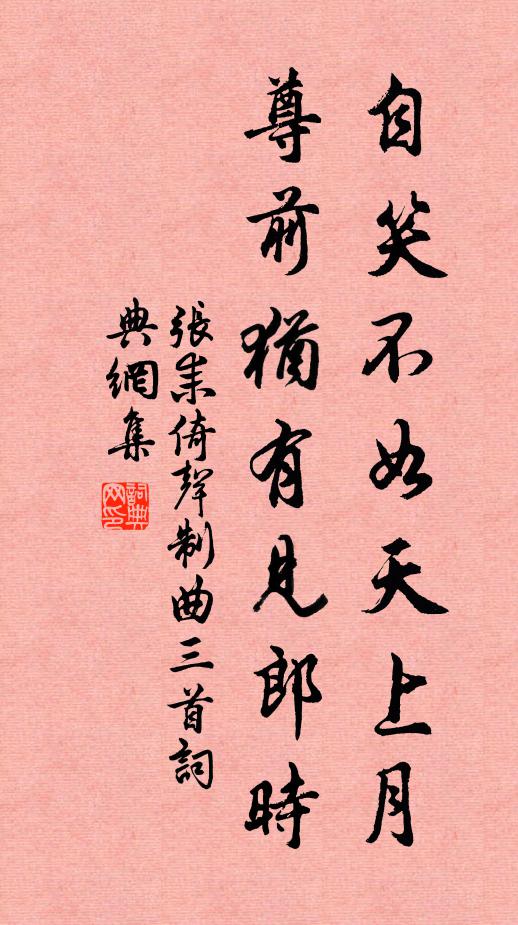 自笑不如天上月
尊前猶有見郎時
張耒倚聲制曲三首詞
典網集
詞典
网印